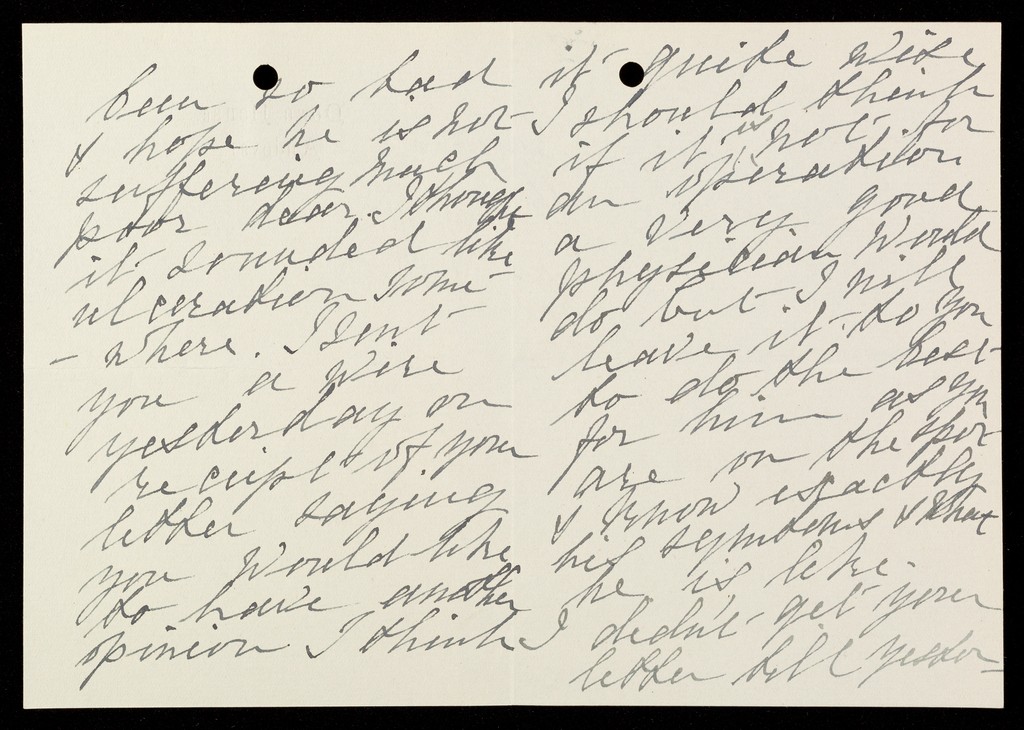 been so bad
& hope he is not
suffering much
poor dear. I thought
it sounded like
ulceration some-
- where. I sent
you a wire
yesterday on
reciept of your
letter saying
you would like
to have another
opinion I think
it quite wise
I should think
if it is not for
an operation
a very good
physician would
do but I will
leave it to you
to do the best
for him as you
are on the spot
& know exactly
his symtoms & what
he is like.
I didn't get your
letter till yester-